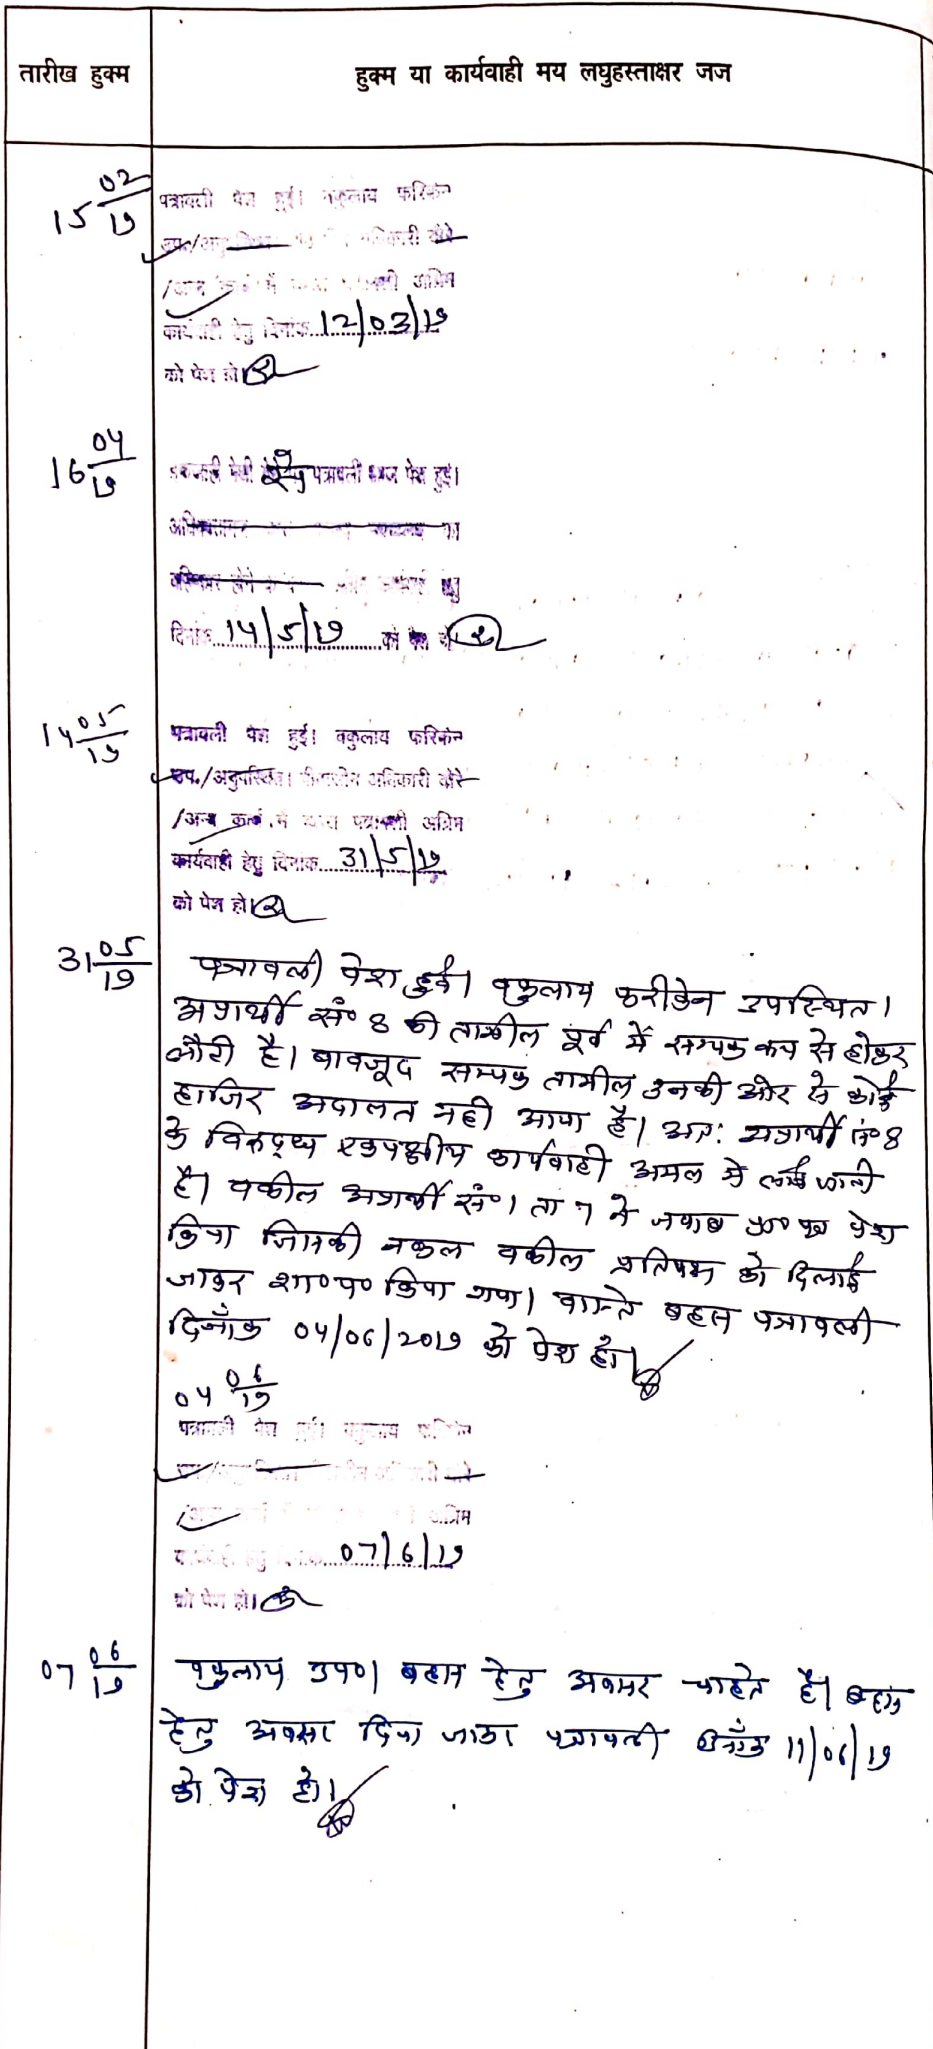 तारीख हुक्म
हुक्म या कार्यवाही मय लघुहस्ताक्षर जज
15 02/19
पत्रावली पेश हुई। वकुलाय फरिकेन
उप./ अधिकारी दौरे
/अन्य कार्य में पत्रावली अग्रिम
कार्यवाही हेतु दिनांक 12/03/19
को पेश हो।
16 04/19
पेशी पत्रावली आज पेश हुई।
दिनांक 14/5/19 को पेश हो
14 05/19
पत्रावली पेश हुई। वकुलाय फरिकेन
उप./अनुपस्थित। पीठासीन अधिकारी दौरे
/अन्य कार्य में व्यस्त पत्रावली अग्रिम
कार्यवाही हेतु दिनांक 31/5/19
को पेश हो।
31 05/19
पत्रावली पेश हुई। वकुलाय फरीकेन उपस्थित।
अप्रार्थी सं० 8 की तामील पूर्व में सम्यक रूप से होकर
लौटी है। बावजूद सम्यक तामील उनकी ओर से कोई
हाजिर अदालत नही आया है। अतः अप्रार्थी सं० 8
के विरुद्ध एकपक्षीय कार्यवाही अमल में लाई जाती
है। वकील अप्रार्थी सं० 1 ता 7 ने जवाब प्रा० पत्र पेश
किया जिसकी नकल वकील प्रतिपक्ष को दिलाई
जाकर शा०प० किया गया। वास्ते बहस पत्रावली
दिनाँक 04/06/2019 को पेश हो।
04 06/19
पत्रावली पेश हुई। वकुलाय फरिकेन
अग्रिम
07/6/19
को पेश हो।
07 06/19
वकुलाय उप०। बहस हेतु अवसर चाहते है। बहस
हेतु अवसर दिया जाकर पत्रावली दिनाँक 11/06/19
को पेश हो।